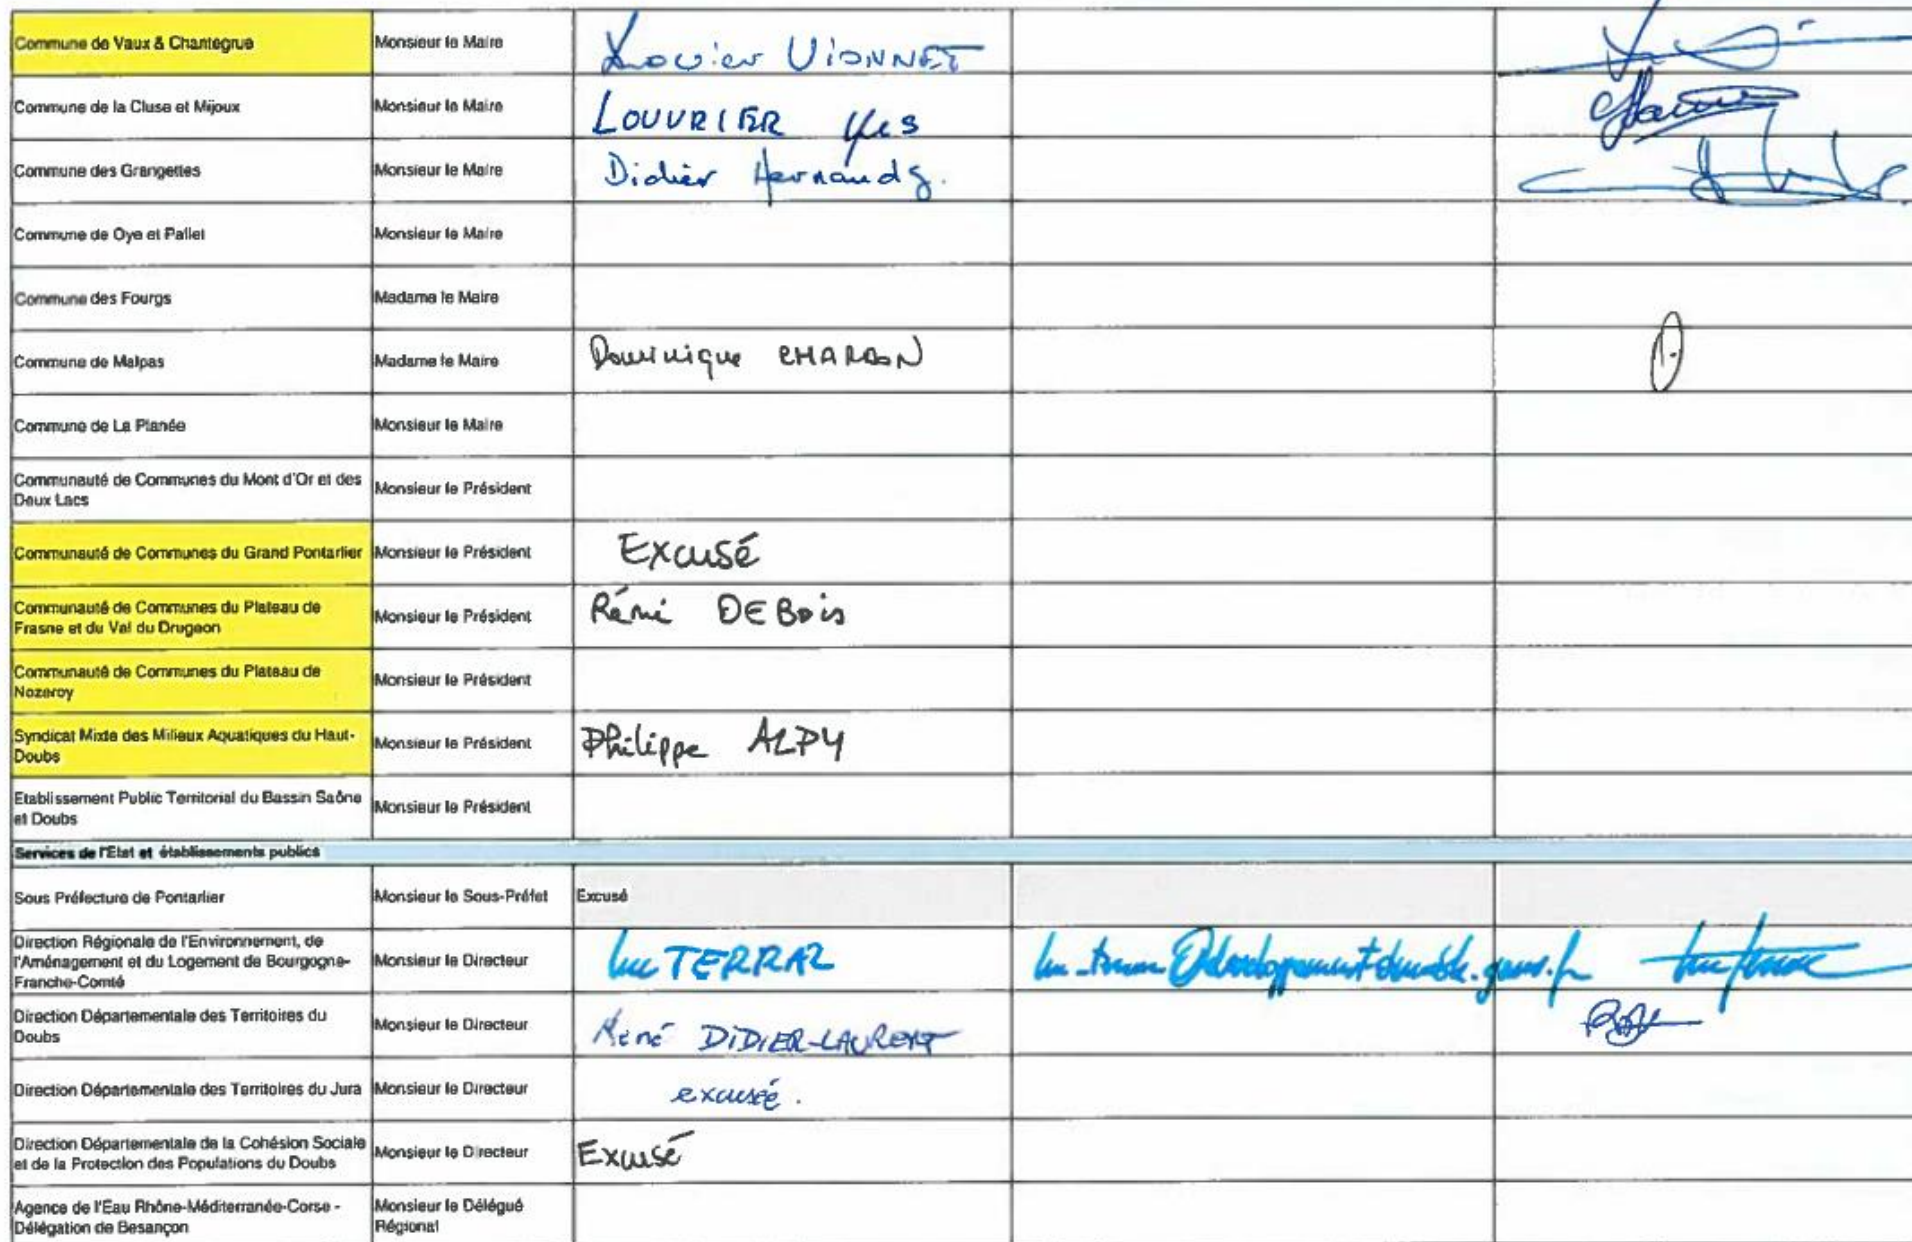 Commune de Vaux & Chantegrue Monsieur le Maire Xavier VIONNET
Commune de la Cluse et Mijoux Monsieur le Maire LOUVRIER Yves
Commune des Grangettes Monsieur le Maire Didier Hernandz.
Commune de Oye et Pallet Monsieur le Maire
Commune des Fourgs Madame le Maire
Commune de Malpas Madame le Maire Dominique CHARDON
Commune de La Planée Monsieur le Maire
Communauté de Communes du Mont d'Or et des
Deux Lacs
Monsieur le Président
Communauté de Communes du Grand Pontarlier Monsieur le Président Excusé
Communauté de Communes du Plateau de
Frasne et du Val du Drugeon
Monsieur le Président Rémi DEBOIS
Communauté de Communes du Plateau de
Nozeroy
Monsieur le Président
Syndicat Mixte des Milieux Aquatiques du Haut-
Doubs
Monsieur le Président Philippe ALPY
Etablissement Public Territorial du Bassin Saône
et Doubs
Monsieur le Président
Services de l'Etat et établissements publics
Sous Préfecture de Pontarlier Monsieur le Sous-Préfet Excusé
Direction Régionale de l'Environnement, de
l'Aménagement et du Logement de Bourgogne-
Franche-Comté
Monsieur le Directeur Luc TERRAZ
Direction Départementale des Territoires du
Doubs
Monsieur le Directeur René DIDIER-LAURENT
Direction Départementale des Territoires du Jura Monsieur le Directeur excusée.
Direction Départementale de la Cohésion Sociale
et de la Protection des Populations du Doubs
Monsieur le Directeur Excusé
Agence de l'Eau Rhône-Méditerranée-Corse -
Délégation de Besançon
Monsieur le Délégué
Régional